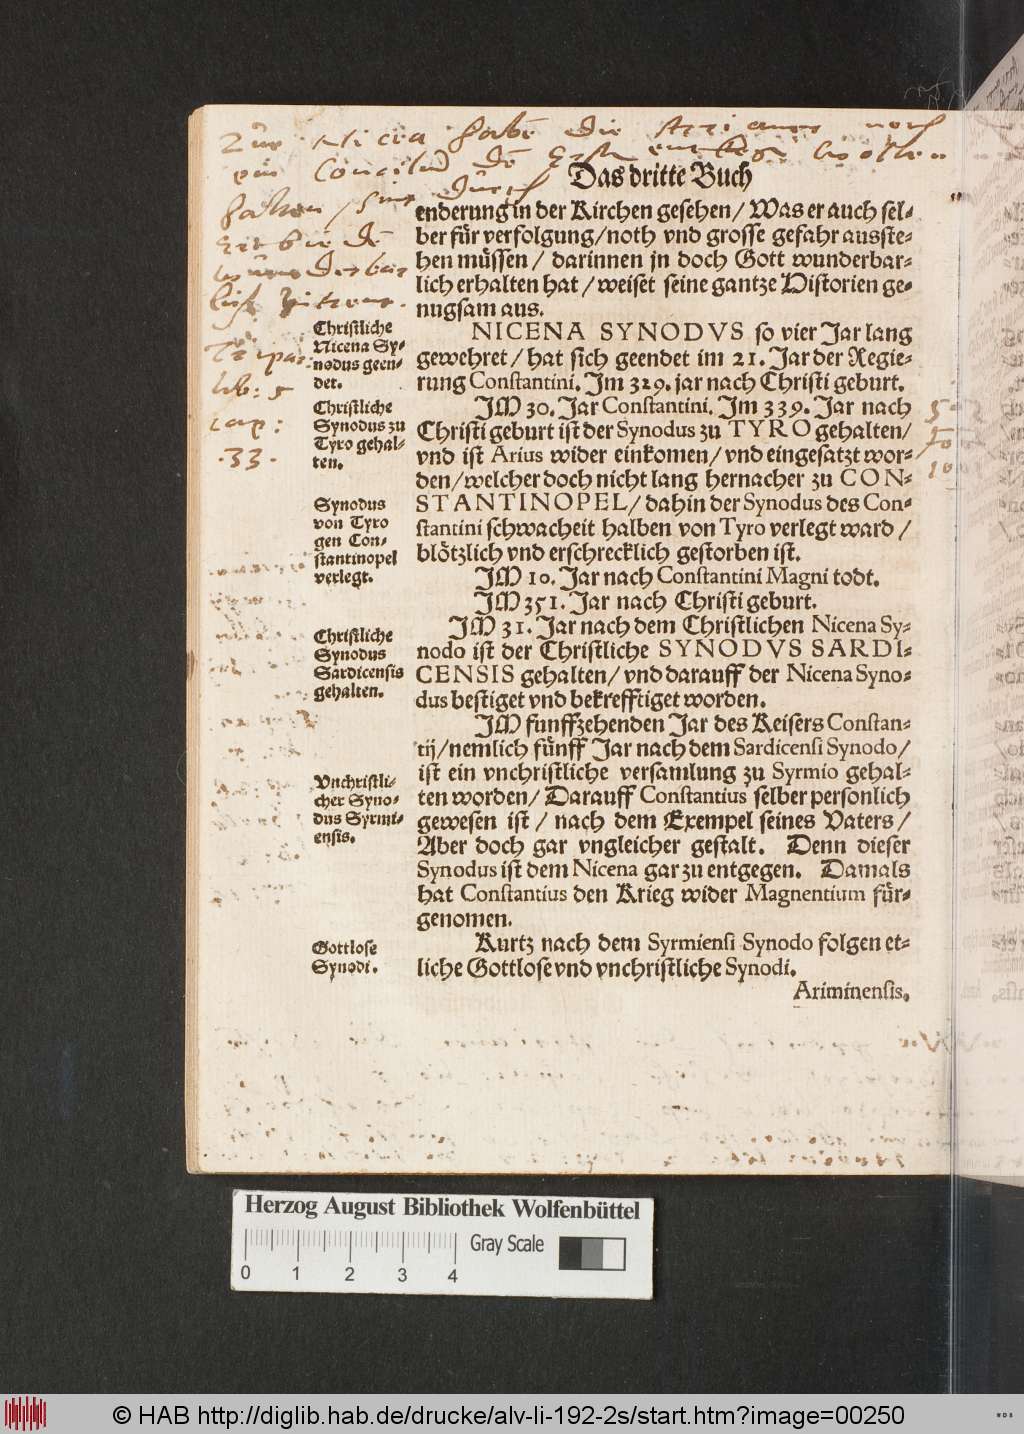 Zur Nicea habē die Arrianer noch
ein Concilium wollen
halten / sint durch
Erdbie dē
lich
Tripar:
lib: 5
cap:
.33.
Das dritte Buch
enderung in der Kirchen gesehen / Was er auch sel-
ber für verfolgung / noth vnd grosse gefahr ausste-
hen müssen / darinnen jn doch Gott wunderbar-
lich erhalten hat / weiset seine gantze Historien ge-
nugsam aus.
Christliche
Nicena Sy-
nodus geen-
det.
NICENA SYNODVS so vier Jar lang
gewehret / hat sich geendet im 21. Jar der Regie-
rung Constantini. Im 329. jar nach Christi geburt.
Christliche
Synodus zu
Tyro gehal-
ten.
JM 30. Jar Constantini. Im 339. Jar nach
Christi geburt ist der Synodus zu TYRO gehalten /
vnd ist Arius wider einkomen / vnd eingesatzt wor-
den / welcher doch nicht lang hernacher zu CON-
STANTINOPEL / dahin der Synodus des Con-
stantini schwacheit halben von Tyro verlegt ward /
blötzlich vnd erschrecklich gestorben ist.
Synodus
von Tyro
gen Con-
stantinopel
verlegt.
JM 10. Jar nach Constantini Magni todt.
JM 351. Jar nach Christi geburt.
JM 31. Jar nach dem Christlichen Nicena Sy-
nodo ist der Christliche SYNODVS SARDI-
CENSIS gehalten / vnd darauff der Nicena Syno-
dus bestiget vnd bekrefftiget worden.
Christliche
Synodus
Sardicensis
gehalten.
JM funffzehenden Jar des Keisers Constan-
tij / nemlich fünff Jar nach dem Sardicensi Synodo /
ist ein vnchristliche versamlung zu Syrmio gehal-
ten worden / Darauff Constantius selber personlich
gewesen ist / nach dem Exempel seines Vaters /
Aber doch gar vngleicher gestalt. Denn dieser
Synodus ist dem Nicena gar zu entgegen. Damals
hat Constantius den Krieg wider Magnentium für-
genomen.
Vnchristli-
cher Syno-
dus Syrmi-
ensis.
Kurtz nach dem Syrmiensi Synodo folgen et-
liche Gottlose vnd vnchristliche Synodi.
Gottlose
Synodi.
Ariminensis.
Herzog August Bibliothek Wolfenbüttel
0 1 2 3 4
Gray Scale
© HAB http://diglib.hab.de/drucke/alv-li-192-2s/start.htm?image=00250